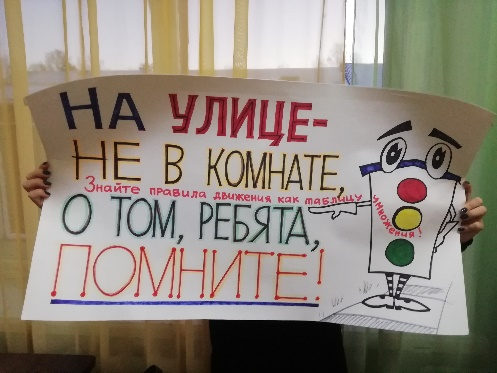 НА УЛИЦЕ-
НЕ В КОМНАТЕ,
Знайте правила движения как таблицу умножения!
О ТОМ, РЕБЯТА,
ПОМНИТЕ!